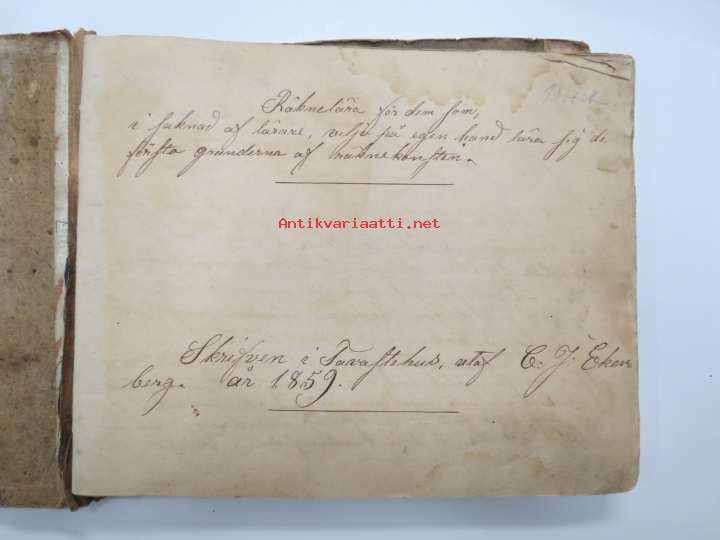 Räknelära för dem som,
i saknad af lärare, velja på egen hand lära sig de
första grunderna af räknekonsten.
Antikvariaatti.net
Skrifven i Tavastehus, utaf C. J. Eken
berg. år 1859.